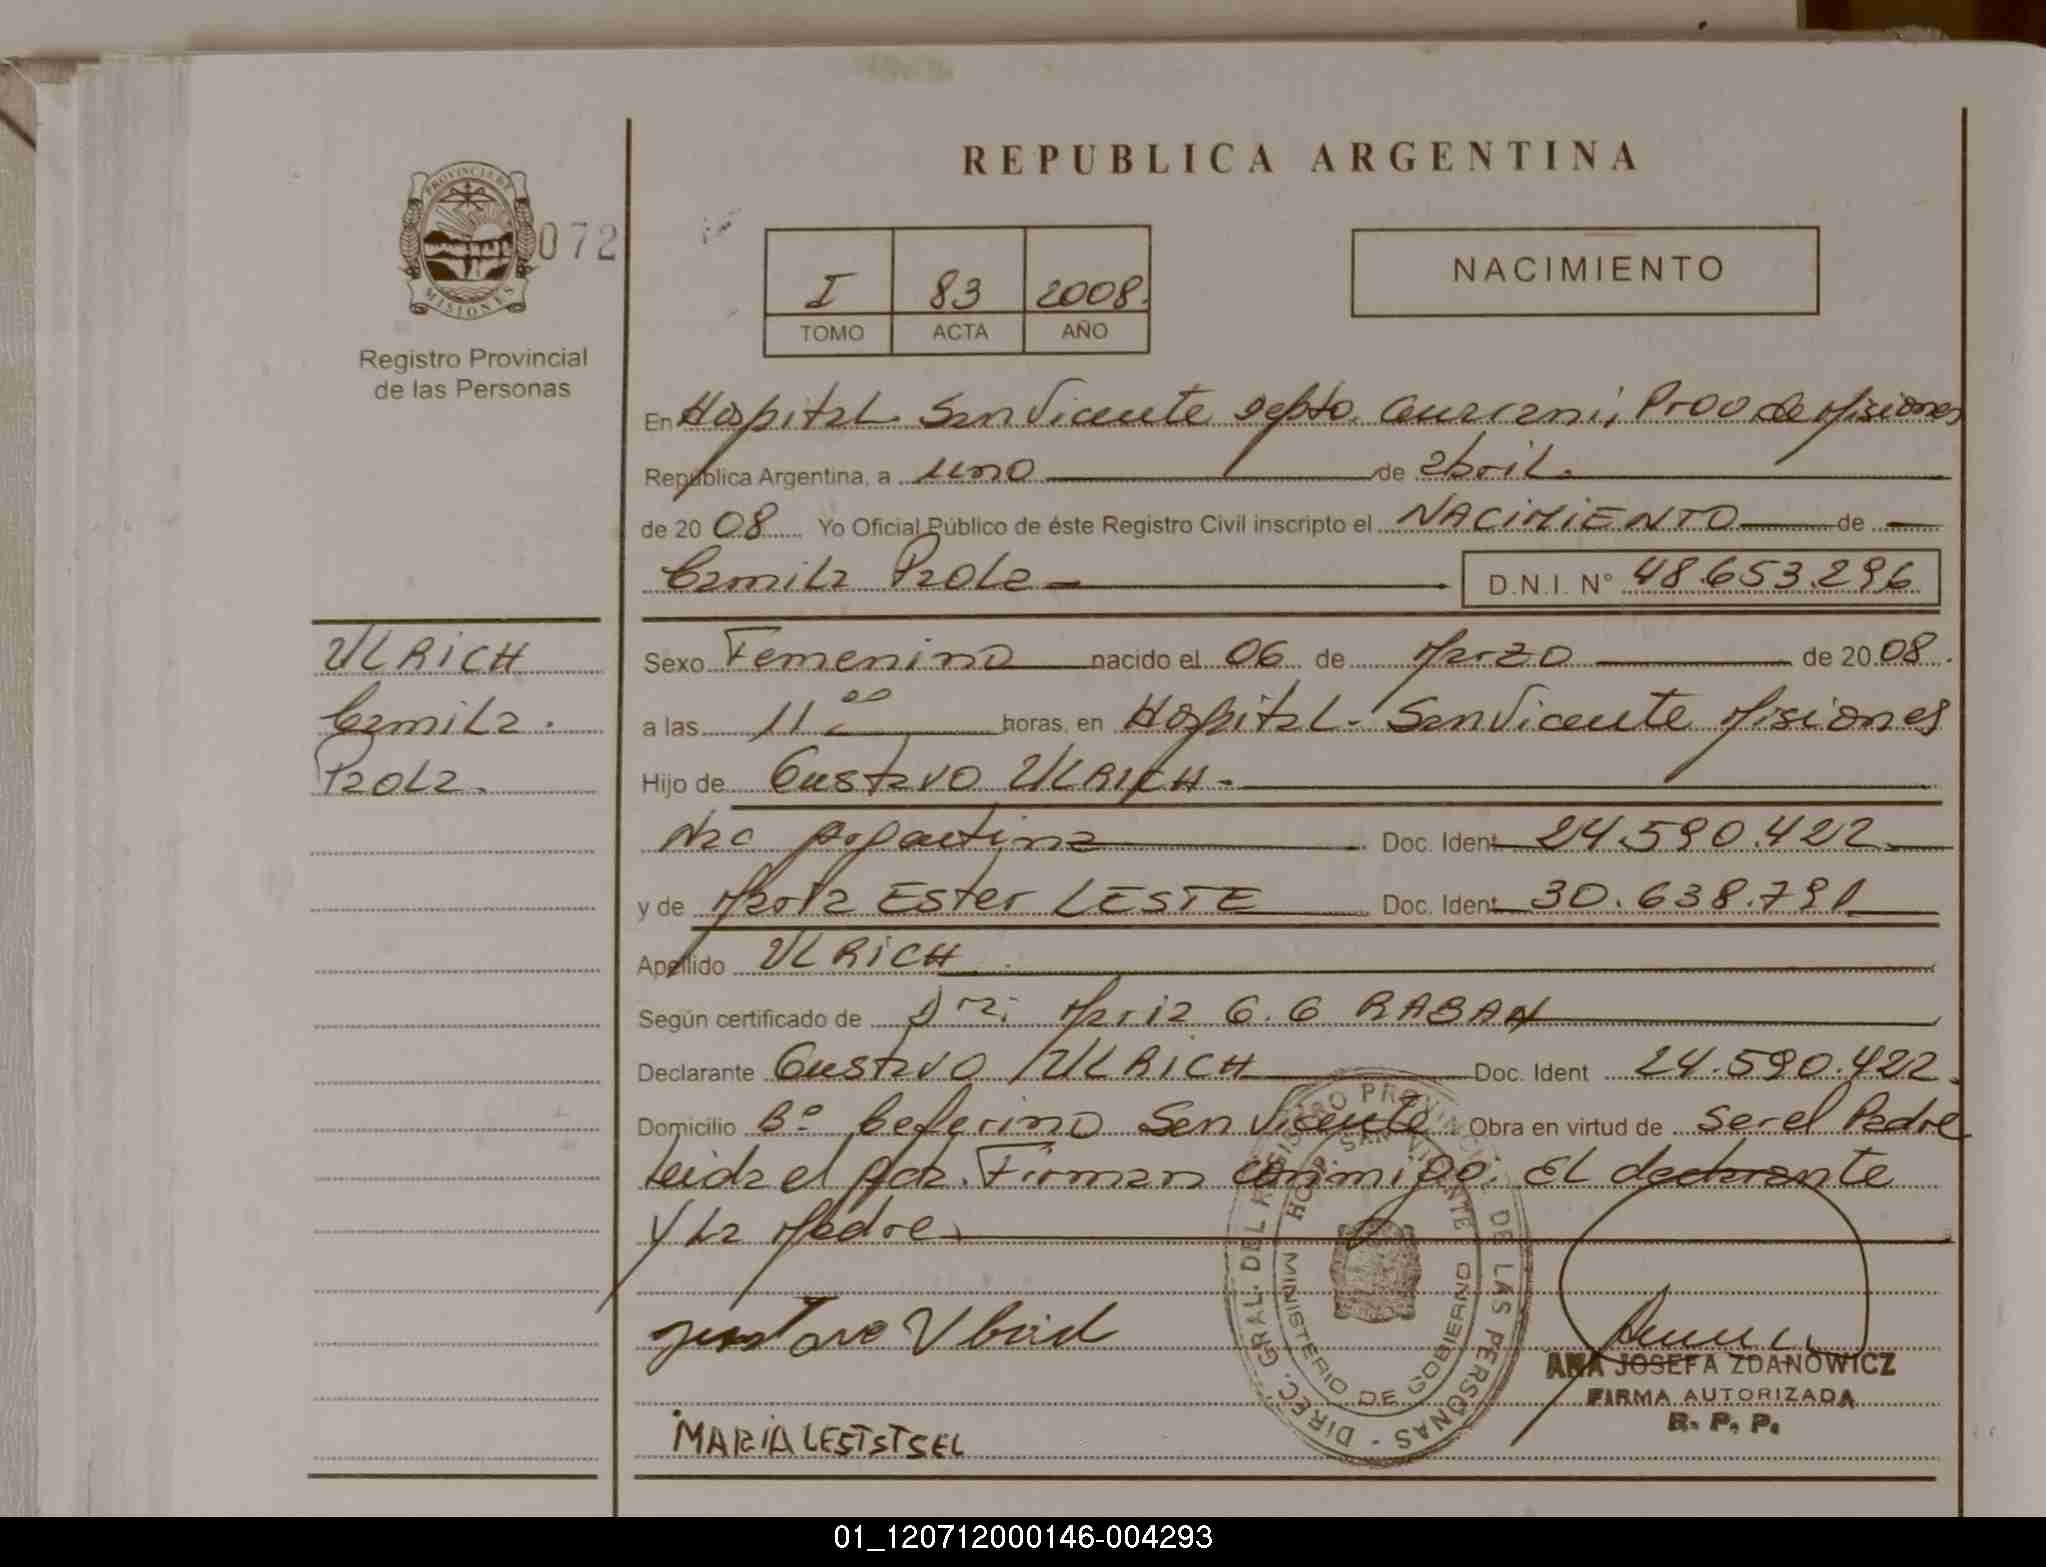 REPUBLICA ARGENTINA
PROVINCIA DE
MISIONES
072
Registro Provincial
de las Personas
I 83 2008
TOMO ACTA AÑO
NACIMIENTO
En Hospital San Vicente depto. Guarani, Prov de Misiones
República Argentina, a uno de abril.
de 2008 Yo Oficial Público de éste Registro Civil inscripto el NACIMIENTO de
Camila Paola
D.N.I. Nº 48.653.296
ULRICH
Camila.
Paola.
Sexo Femenino nacido el 06 de Marzo de 2008.
a las 11 00 horas, en Hospital - San Vicente Misiones
Hijo de Gustavo ULRICH.
Nac Argentina Doc. Ident 24.590.422
y de Marta Ester LESTE Doc. Ident 30.638.791
Apellido ULRICH
Según certificado de Dra: Maria G. G RABAN
Declarante Gustavo ULRICH Doc. Ident 24.590.422.
Domicilio Bº Ceferino San Vicente Obra en virtud de ser el Padre
Leida el acta. Firman conmigo. El declarante
y La Madre.
DIREC. GRAL. DEL REGISTRO PROVINCIAL DE LAS PERSONAS -
HOSP. SAN VICENTE
MINISTERIO DE GOBIERNO
ANA JOSEFA ZDANOWICZ
FIRMA AUTORIZADA
R. P. P.
MARIA LESTSTSEL
01_120712000146-004293